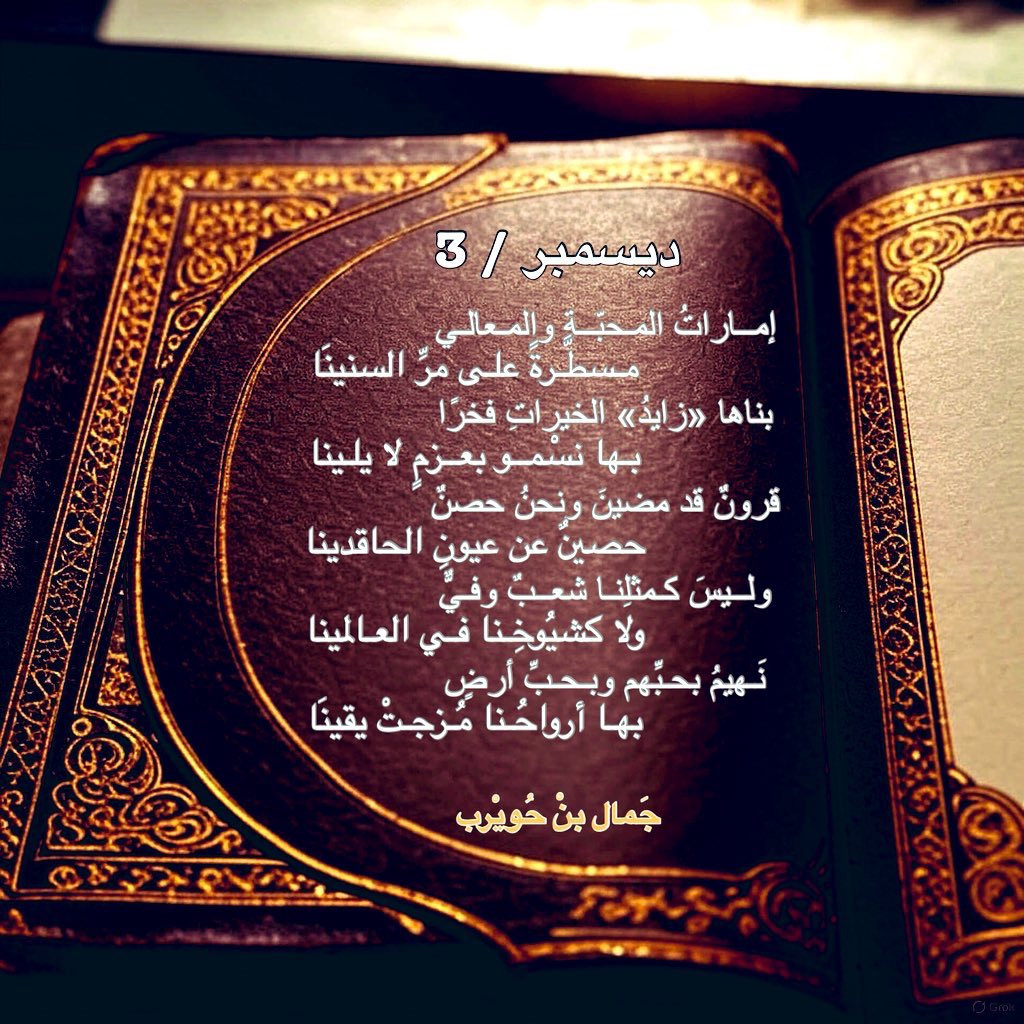 ديسمبر / 3
إمــاراتُ المـحبّــةِ والمـعالـي
مـسطَّـرةً علـى مرِّ السنينَا
بناها «زايدُ» الخيراتِ فخرًا
بـها نسْمــو بعــزمٍ لا يلـينا
قرونٌ قد مضينَ ونحنُ حصنٌ
حصينٌ عن عيونِ الحاقدينا
ولـيسَ كـمثلِنـا شعـبٌ وفـيٌّ
ولا كشيُوخِـنا فـي العـالمينا
نَـهيمُ بحبِّهم وبـحبِّ أرضٍ
بـهـا أرواحُـنا مُـزجـتْ يقينَا
جَمال بنْ حُويْرب
Grok